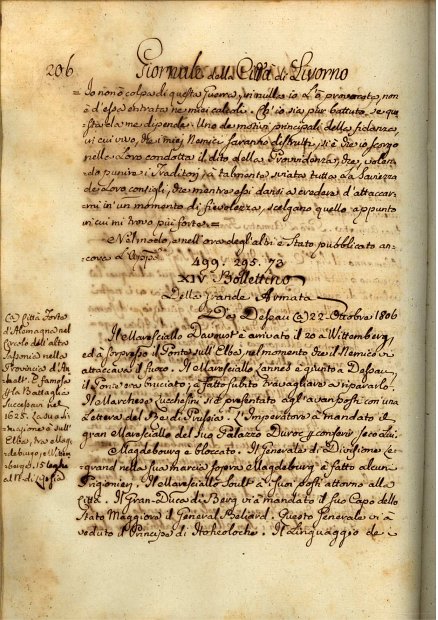 206 Giornale della Città di Livorno
= Io non ò colpa di questa Guerra, in nulla io l'ò provocata, non
ò d'essa entrata ne miei calcoli. Ch'io sia pur battuto, se que-
sta da me dipende. Uno de motivi principali della fidanza,
in cui vivo, che i miei Nemici saranno distrutti, si è che io scorgo
nella Loro condotta il dito della Providenza, che, volen-
do punire i Traditori, à talmente sviata tutta la Saviezza
de Loro consigli, che mentre essi darsi a credere d'attaccar-
mi in un momento di fievolezza, scelgano quello appunto
in cui mi trovo più forte. =
Nel modo, a nell'ora degl'altri è Stato pubblicato an-
cora
499. 295. 73
XIV Bollettino
Della Grande Armata
Da Dessau Ca 22. Ottobre 1806
Il Maresciallo Davoust è arrivato il 20 a Wittemberg,
ed à sorpreso il Ponte sull'Elba nel momento che il Nemico vi
attaccava il fuoco. Il Maresciallo Lannes è giunto a Dessau,
il Ponte era bruciato; à fatto subito travagliare a ripararlo.
Il Marchese Lucchesini s'è presentato agl'avanposti con una
Lettera del Re di Prussia. L'Imperatore à mandato il
gran Maresciallo del Suo Palazzo Duroc p conferir seco Lui.
Magdebourg è bloccato. Il Generale di Divisione Le-
grand nella sua marcia sopra Magdebourg à fatto alcuni
Prigionieri. Il Maresciallo Soult à Suoi posti attorno alla
Città. Il Gran-Duca di Berg vi à mandato il suo Capo dello
Stato Maggiore il General Beliard. Questo Generale vi à
veduto il Principe di Hohenlohe. Il Linguaggio de
Ca Città Forte
d'Alemagna nel
Circolo dell'alta
Sassonia nella
Provincia d'An-
halt. È famosa
p la Battaglia
Succeduta nel
1625. La sua si-
tuazione è sull'
Elba, tra Mag-
debourgo, e Wittem-
bergo, à 15 leghe